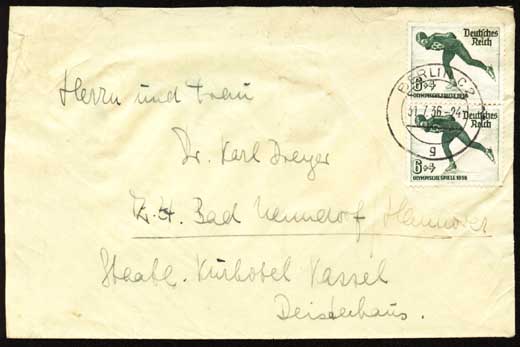 Deutsches
Reich
6+4
OLYMPISCHE SPIELE 1936
BERLIN C2
31.7.36.-24
g
Deutsches
Reich
6+4
OLYMPISCHE SPIELE 1936
Herrn und Frau
Dr. Karl Dreyer
z. Zt. Bad Nenndorf / Hannover
Staatl. Kurhotel Kassel
Deisterhaus.